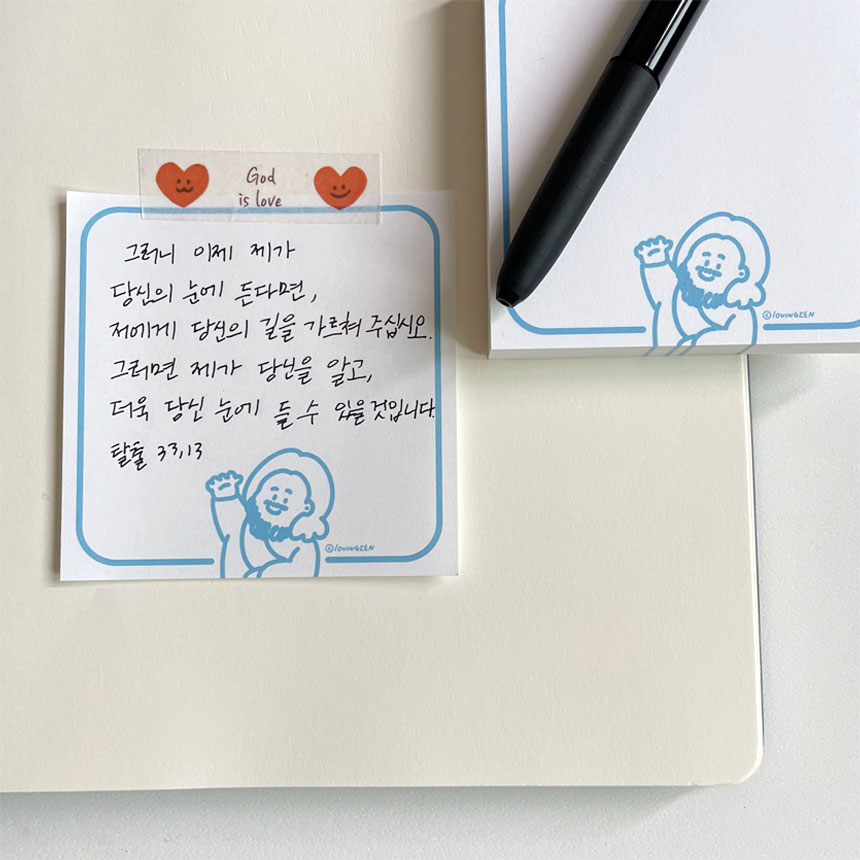 God
is love
그러니 이제 제가
당신의 눈에 든다면,
저에게 당신의 길을 가르쳐 주십시오.
그러면 제가 당신을 알고,
더욱 당신 눈에 들 수 있을 것입니다.
탈출 33,13
©lovingzen
©lovingzen